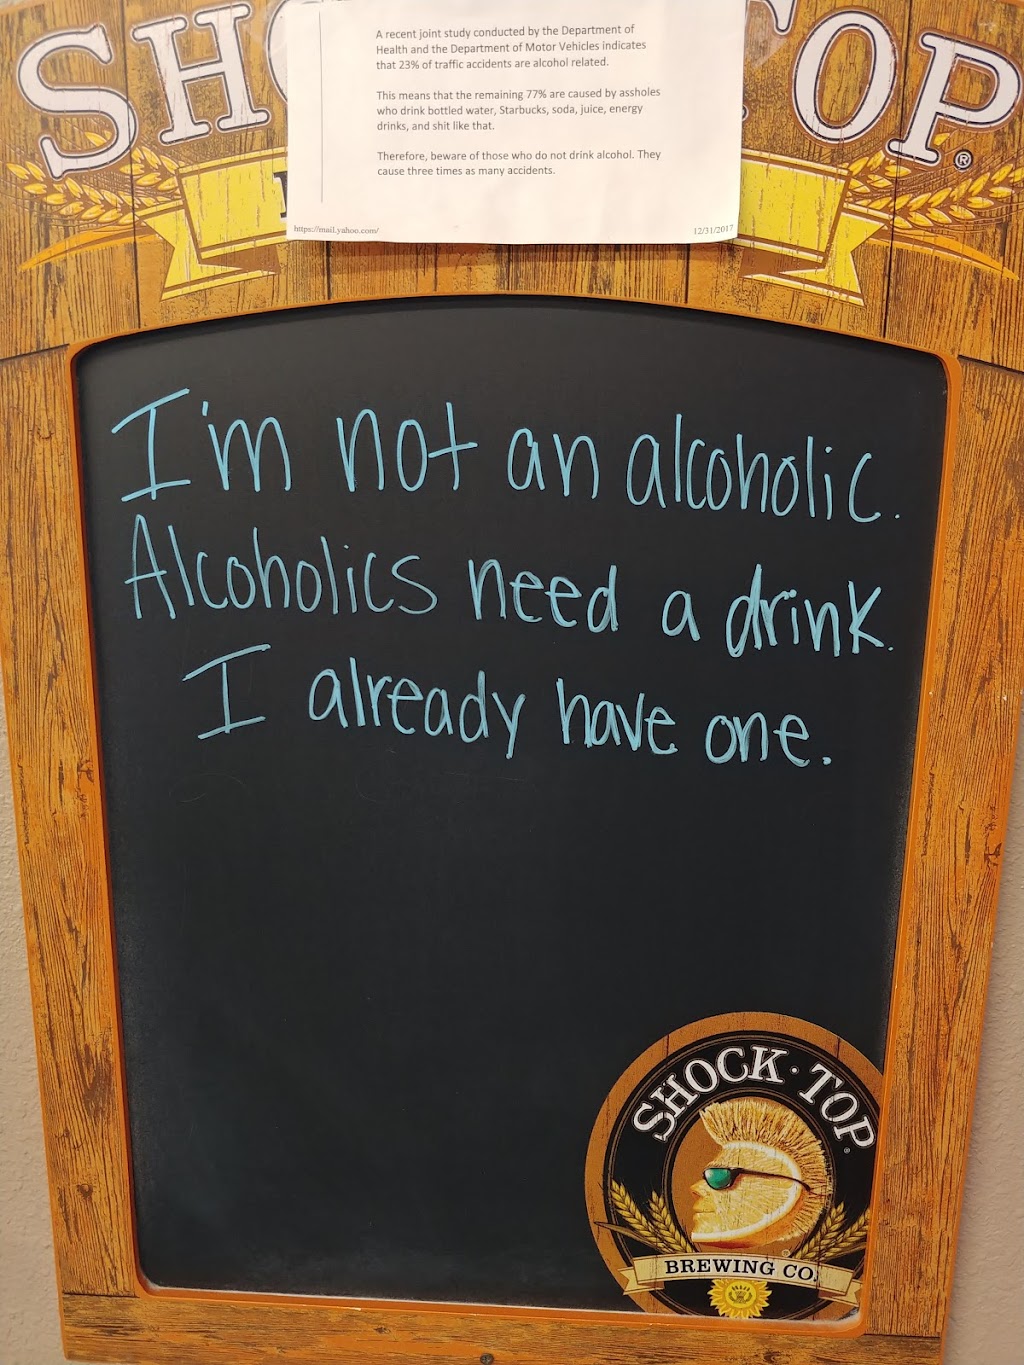 SHO TOP®
A recent joint study conducted by the Department of
Health and the Department of Motor Vehicles indicates
that 23% of traffic accidents are alcohol related.
This means that the remaining 77% are caused by assholes
who drink bottled water, Starbucks, soda, juice, energy
drinks, and shit like that.
Therefore, beware of those who do not drink alcohol. They
cause three times as many accidents.
https://mail.yahoo.com/ 12/31/2017
I'm not an alcoholic.
Alcoholics need a drink.
I already have one.
SHOCK·TOP®
BREWING CO.